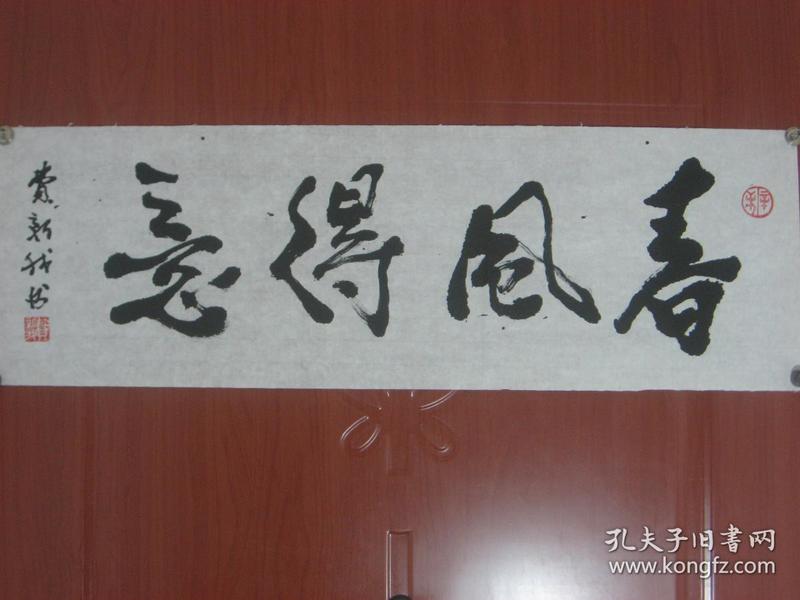 春風得意
費新我書
孔夫子旧書网
www.kongfz.com